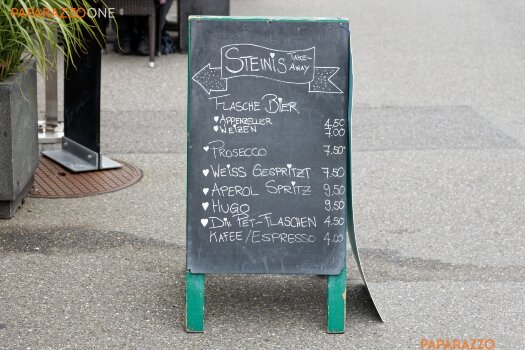 PAPARAZZO ONE
STEINIS TAKE-AWAY
FLASCHE BIER
♥ APPENZELLER 4.50
♥ WEIZEN 7.00
♥ PROSECCO 7.50
♥ WEISS GESPRITZT 7.50
♥ APEROL SPRITZ 9.50
♥ HUGO 9.50
♥ DIV. PET-FLASCHEN 4.50
KAFEE/ESPRESSO 4.00
PAPARAZZO